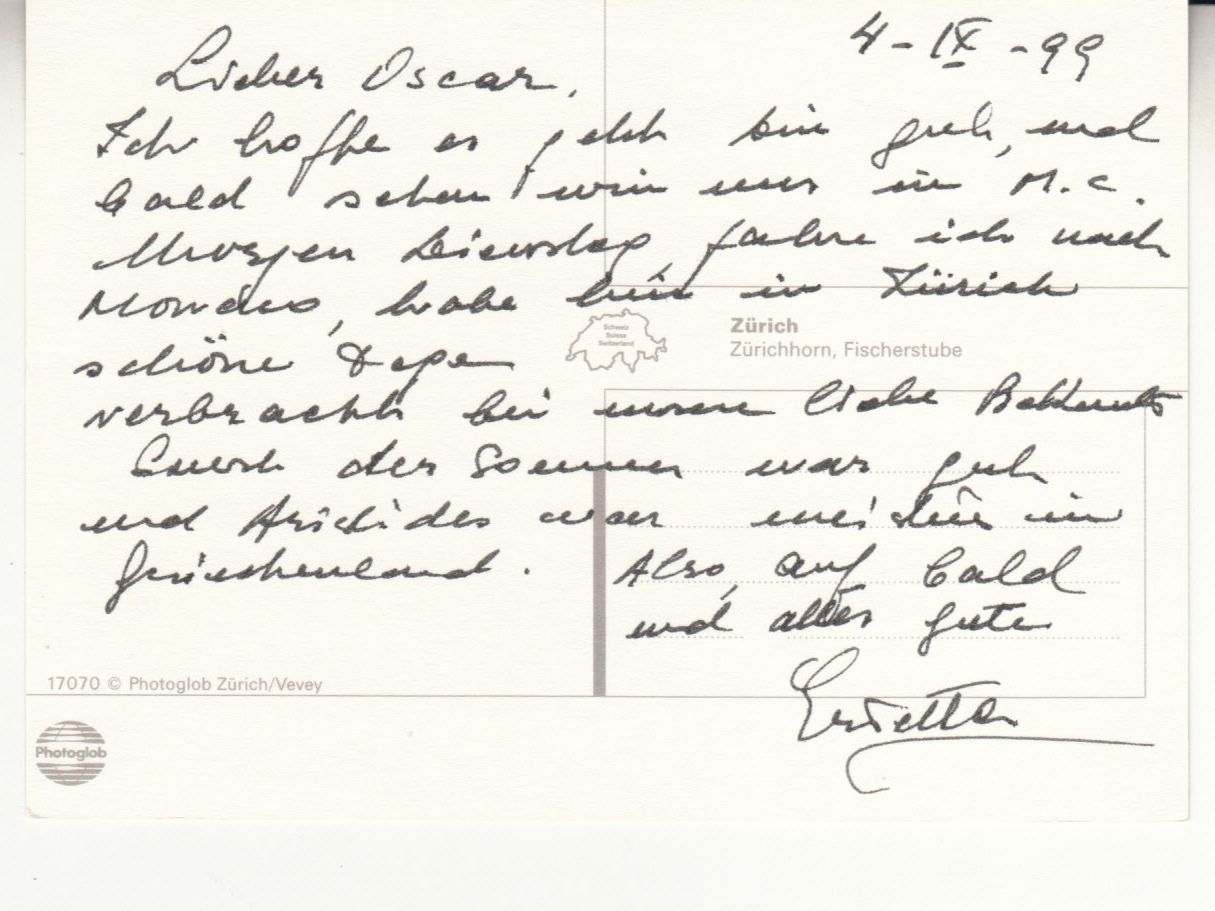 4-IX-99
Lieber Oscar,
Ich hoffe es geht Dir gut, und
bald sehen wir uns in M.C.
Morgen Dienstag, fahre ich nach
, habe hier in Zürich
schöne Tage
verbracht bei unsere liebe
der Sommer war gut
und Aristides war mit in
Griechenland.
Also, auf bald
und alles gute
Zürich
Zürichhorn, Fischerstube
Schweiz
Suisse
Switzerland
17070 © Photoglob Zürich/Vevey
Photoglob